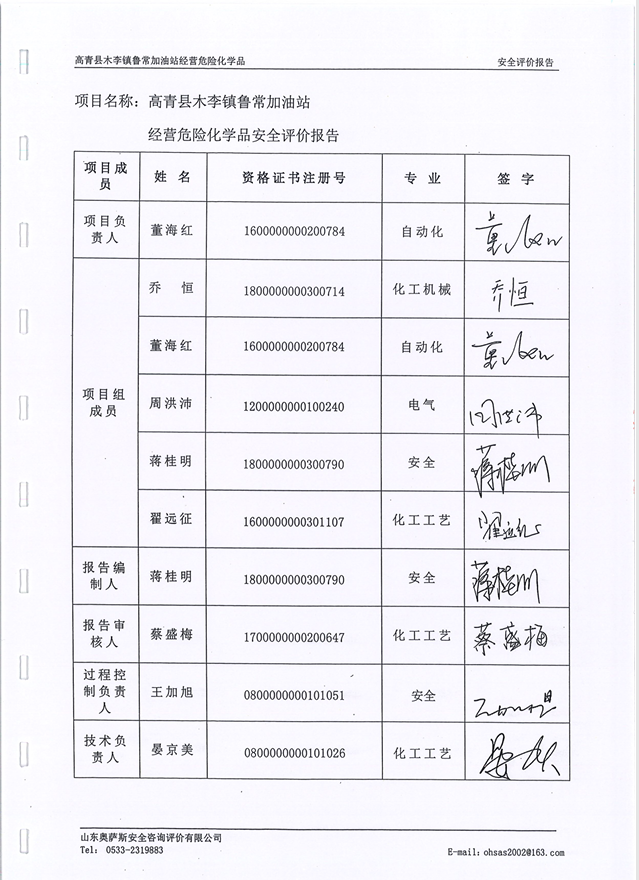 高青县木李镇鲁常加油站经营危险化学品 安全评价报告
项目名称：高青县木李镇鲁常加油站
经营危险化学品安全评价报告
项目成员 姓 名 资格证书注册号 专 业 签 字
项目负责人 董海红 1600000000200784 自动化
项目组成员 乔 恒 1800000000300714 化工机械 乔恒
董海红 1600000000200784 自动化
周洪沛 1200000000100240 电气 周洪沛
蒋桂明 1800000000300790 安全
翟远征 1600000000301107 化工工艺
报告编制人 蒋桂明 1800000000300790 安全
报告审核人 蔡盛梅 1700000000200647 化工工艺 蔡盛梅
过程控制负责人 王加旭 0800000000101051 安全
技术负责人 晏京美 0800000000101026 化工工艺
山东奥萨斯安全咨询评价有限公司
Tel: 0533-2319883 E-mail:ohsas2002@163.com